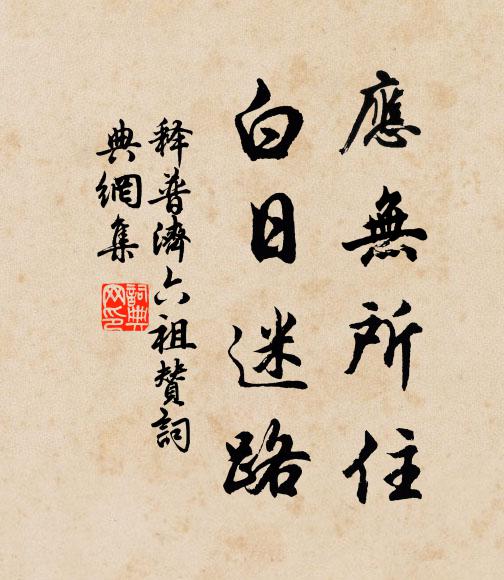 應無所住
白日迷路
释普濟六祖贊詞
典網集
詞典网印